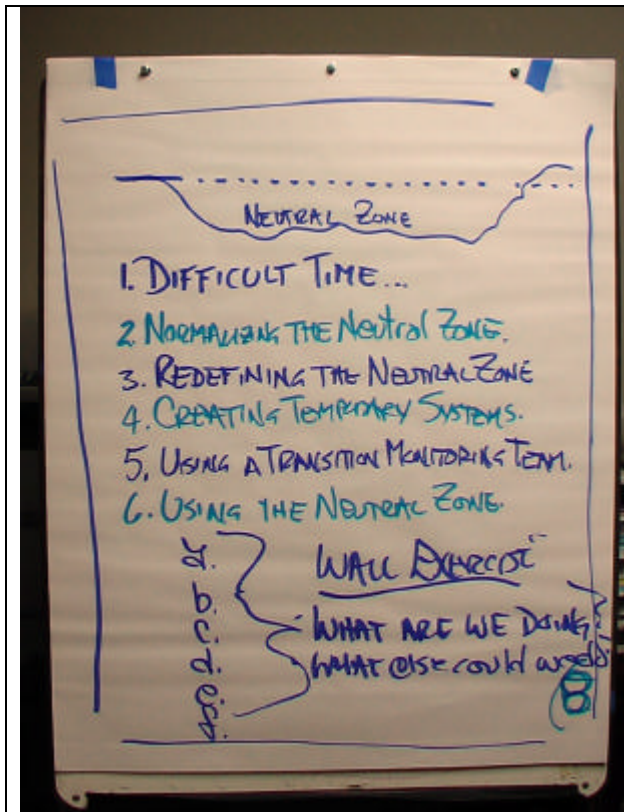 NEUTRAL ZONE
1. DIFFICULT TIME...
2. NORMALIZING THE NEUTRAL ZONE.
3. REDEFINING THE NEUTRAL ZONE
4. CREATING TEMPORARY SYSTEMS.
5. USING A TRANSITION MONITORING TEAM.
6. USING THE NEUTRAL ZONE.
a.
b.
c.
d.
WALL EXERCISE
WHAT ARE WE DOING,
WHAT else could we do